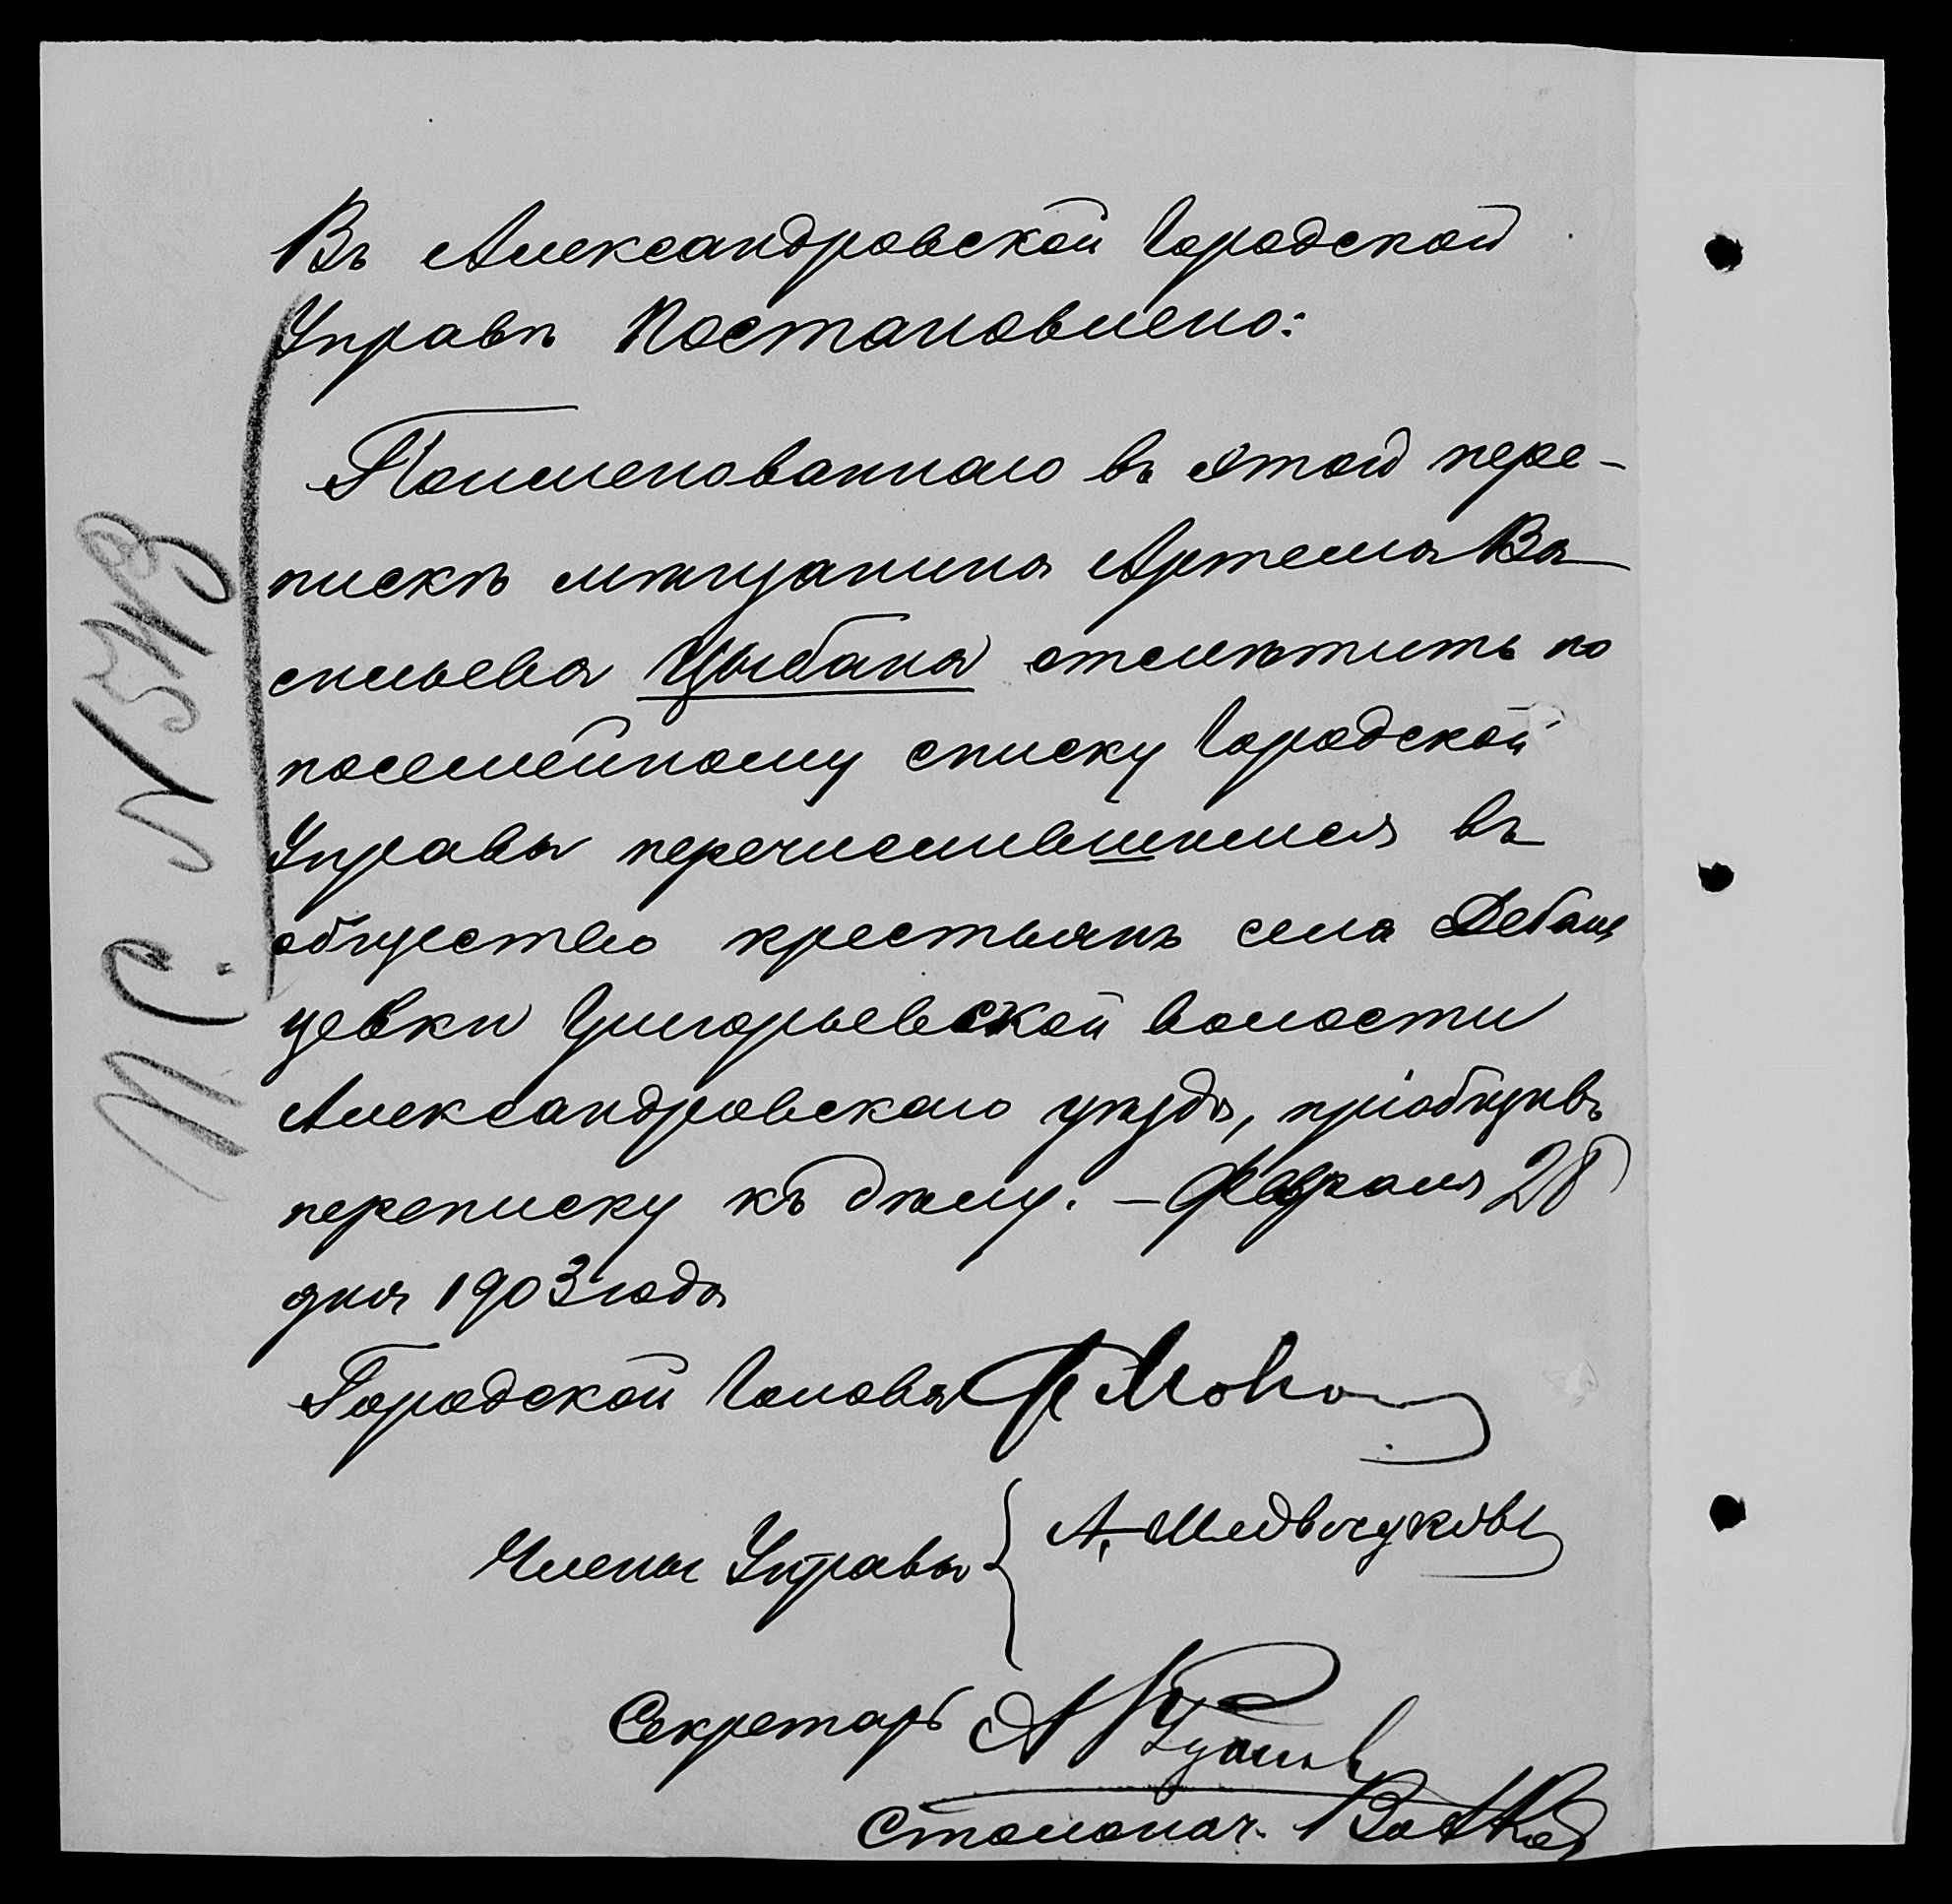 Въ Александровской Городской
Управѣ Постановлено:
Поименованнаго въ этой пере-
пискѣ мѣщанина Артема Ва
сильева Цыбана отмѣтить по
посемейному списку Городской
Управы перечислившимся въ
общество крестьянъ села
Григорьевской волости
Александровскаго уѣзда, пріобщивъ
переписку къ дѣлу. – Февраля 28
дня 1903 года
Городской Голова
Члены Управы А.
Секретарь А
Столонач.
№